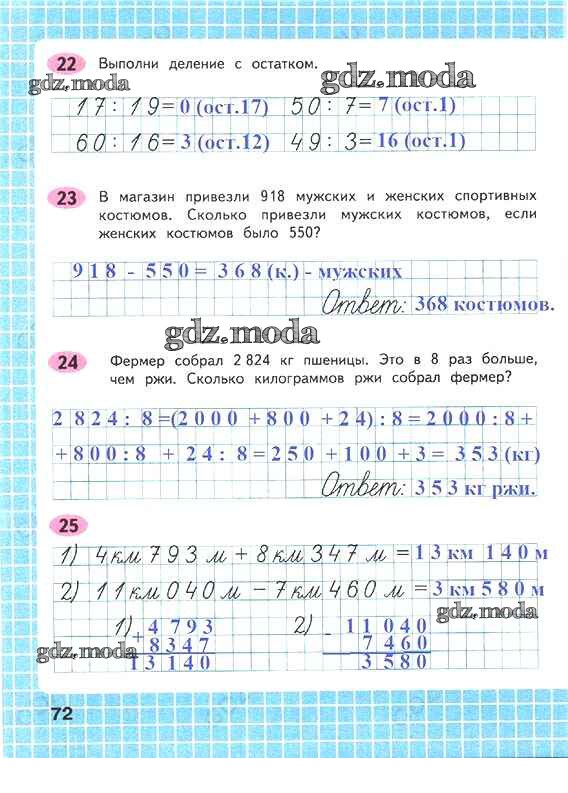 22 Выполни деление с остатком.
gdz.moda gdz.moda
17 : 19 = 0 (ост.17) 50 : 7 = 7 (ост.1)
60 : 16 = 3 (ост.12) 49 : 3 = 16 (ост.1)
23 В магазин привезли 918 мужских и женских спортивных
костюмов. Сколько привезли мужских костюмов, если
женских костюмов было 550?
918 - 550 = 368 (к.) - мужских
Ответ: 368 костюмов.
gdz.moda
24 Фермер собрал 2 824 кг пшеницы. Это в 8 раз больше,
чем ржи. Сколько килограммов ржи собрал фермер?
2 824 : 8 =(2000 +800 +24) : 8 = 2000 : 8 +
+800:8 + 24 : 8 = 250 +100 +3 = 353 (кг)
Ответ: 353 кг ржи.
25
1) 4 км 793 м + 8 км 347 м = 13 км 140 м
2) 11 км 040 м − 7 км 460 м = 3 км 580 м
gdz.moda
1) 4 793 2) 11 040
+ 8347 - 7 460
gdz.moda
13 140 3 580
72